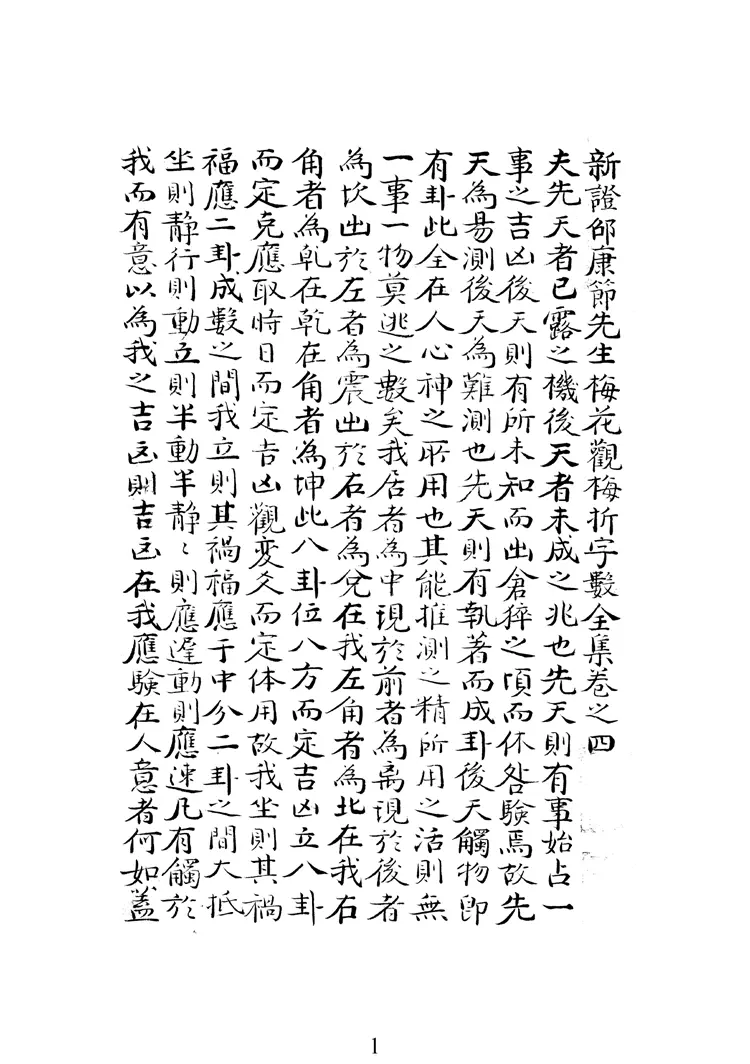 新證邵康節先生梅花觀梅折字數全集卷之四
夫先天者已露之機後天者未成之兆也先天則有事始占一
事之吉凶後天則有所未知而出倉猝之頃而休咎驗焉故先
天為易測後天為難測也先天則有執著而成卦後天觸物即
有卦此全在人心神之所用也其能推測之精所用之活則無
一事一物莫逃之數矣我居者為中現於前者為离現於後者
為坎出於左者為震出於右者為兌在我左角者為北在我右
角者為乹在乾在角者為坤此八卦位八方而定吉凶立八卦
而定克應取時日而定吉凶觀変爻而定体用故我坐則其禍
福應二卦成數之間我立則其禍福應于中分二卦之間大抵
坐則靜行則動立則半動半靜〻則應遲動則應速凢有觸於
我而有意以為我之吉凶則吉凶在我應驗在人意者何如蓋
1